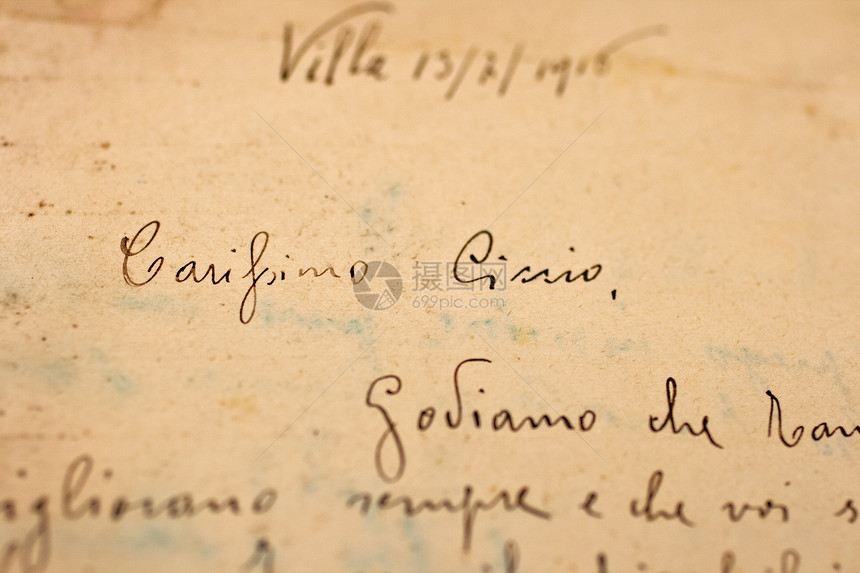 Villa 13/7/1916
Carissimo Cissio,
Godiamo che
igliorano sempre e che voi s
摄图网
699pic.com